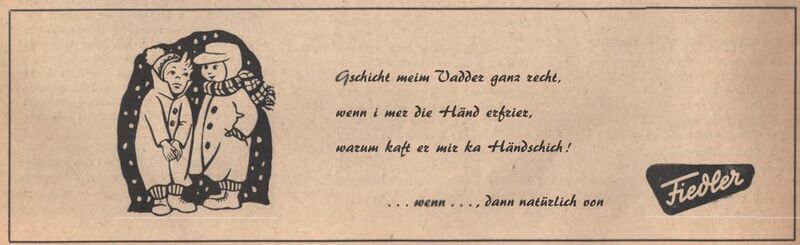 Gschicht meim Vadder ganz recht,
wenn i mer die Händ erfrier,
warum kaft er mir ka Händschich!
. . . wenn . . ., dann natürlich von
Fiedler